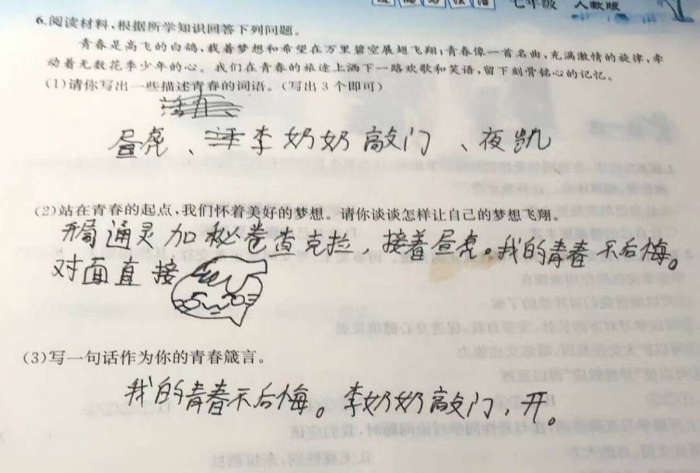 七年级 人教版
6.阅读材料,根据所学知识回答下列问题。
青春是高飞的白鸽,载着梦想和希望在万里碧空展翅飞翔;青春像一首名曲,充满激情的旋律,牵
动着无数花季少年的心。我们在青春的旅途上洒下一路欢歌和笑语,留下刻骨铭心的记忆。
(1)请你写出一些描述青春的词语。(写出3个即可)
昼虎、李奶奶敲门、夜凯
(2)站在青春的起点,我们怀着美好的梦想。请你谈谈怎样让自己的梦想飞翔。
开局通灵加秘卷查克拉,接着昼虎。我的青春不后悔。
对面直接
(3)写一句话作为你的青春箴言。
我的青春不后悔。李奶奶敲门,开。